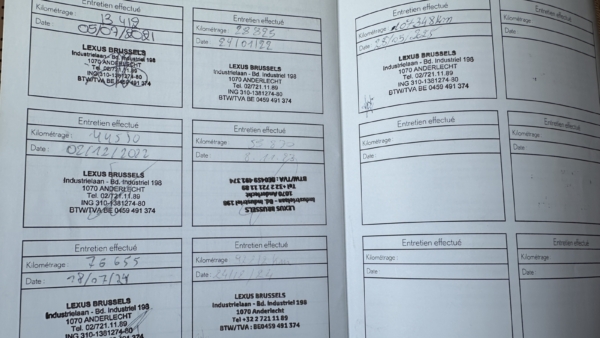 Entretien effectué
Kilométrage : 13 419
Date : 05/07/2021
LEXUS BRUSSELS
Industrielaan - Bd. Industriel 198
1070 ANDERLECHT
Tel. 02/721.11.89
ING 310-1381274-80
BTW/TVA BE 0459 491 374
Entretien effectué
Kilométrage : 28 895
Date : 27/01/22
LEXUS BRUSSELS
Industrielaan - Bd. Industriel 198
1070 ANDERLECHT
Tel. 02/721.11.89
ING 310-1381274-80
BTW/TVA BE 0459 491 374
Entretien effectué
Kilométrage : 44530
Date : 02/12/2022
LEXUS BRUSSELS
Industrielaan - Bd. Industriel 198
1070 ANDERLECHT
Tel. 02/721.11.89
ING 310-1381274-80
BTW/TVA BE 0459 491 374
Entretien effectué
Kilométrage :
Date :
LEXUS BRUSSELS
Industrielaan - Bd. Industriel 198
1070 Anderlecht
Tel +32 2 721 11 89
BTW/TVA : BE0459 491 374
Entretien effectué
Kilométrage : 76 655
Date : 18/07/24
LEXUS BRUSSELS
Industrielaan - Bd. Industriel 198
1070 ANDERLECHT
Tel. 02/721.11.89
ING 310-1381274-80
BTW/TVA BE 0459 491 374
Entretien effectué
Kilométrage :
Date :
LEXUS BRUSSELS
Industrielaan - Bd. Industriel 198
1070 Anderlecht
Tel +32 2 721 11 89
BTW/TVA : BE0459 491 374
Entretien effectué
Kilométrage :
Date :
LEXUS BRUSSELS
Industrielaan - Bd. Industriel 198
1070 ANDERLECHT
Tel. 02/721.11.89
ING 310-1381274-80
BTW/TVA BE 0459 491 374
Kilométrage :
Date :
Entretien effectué
Kilométrage :
Date :
Entretien
Kilométrage :
Date :
Entretien effectué
Kilométrage :
Date :
Entretien
Kilométrage :
Date :